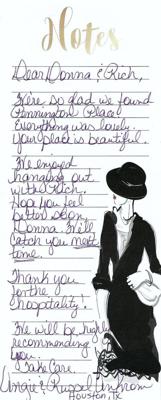 Notes
Dear Donna & Rich,
We're so glad we found
Pennington Place
Everything was lovely.
Your place is beautiful.
We enjoyed
hanging out
with Rich.
Hope you feel
better soon,
Donna. We'll
catch you next
time.
Thank you
for the
hospitality!
We will be highly
recommending
you.
Take Care.
Angie & Russel
Houston, TX